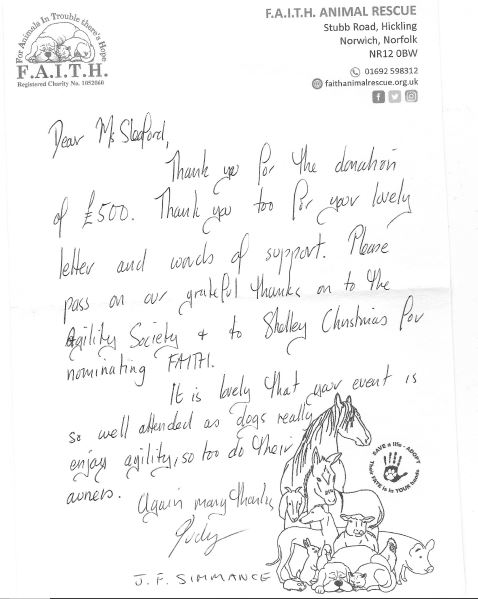 For Animals In Trouble there's Hope
F.A.I.T.H.
Registered Charity No. 1052060
F.A.I.T.H. ANIMAL RESCUE
Stubb Road, Hickling
Norwich, Norfolk
NR12 0BW
01692 598312
faithanimalrescue.org.uk
Dear Ms Sleaford,
Thank you for the donation
of £500. Thank you too for your lovely
letter and words of support. Please
pass on our grateful thanks on to the
Agility Society + to Shelley Christmas for
nominating FAITH.
It is lovely that your event is
so well attended as dogs really
enjoy agility, so too do their
owners.
Again many thanks
Judy
J. F. SIMMANCE
SAVE a life - ADOPT
Their FATE is in YOUR hands